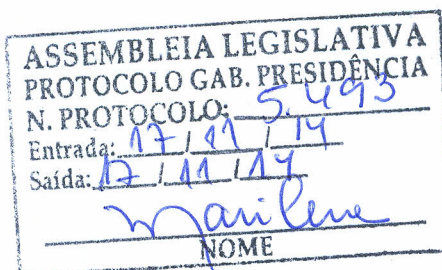 ASSEMBLEIA LEGISLATIVA
PROTOCOLO GAB. PRESIDÊNCIA
N. PROTOCOLO: 5.493
Entrada: 17/11/14
Saída: 17/11/14
Marilene
NOME